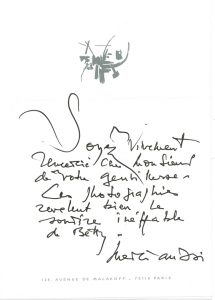 Soyez vivement
remercié cher monsieur
de votre gentillesse
Ces photographies
révèlent bien le
sourire ineffable
de Betty.
merci
AVENUE DE MALAKOFF - 75116 PARIS